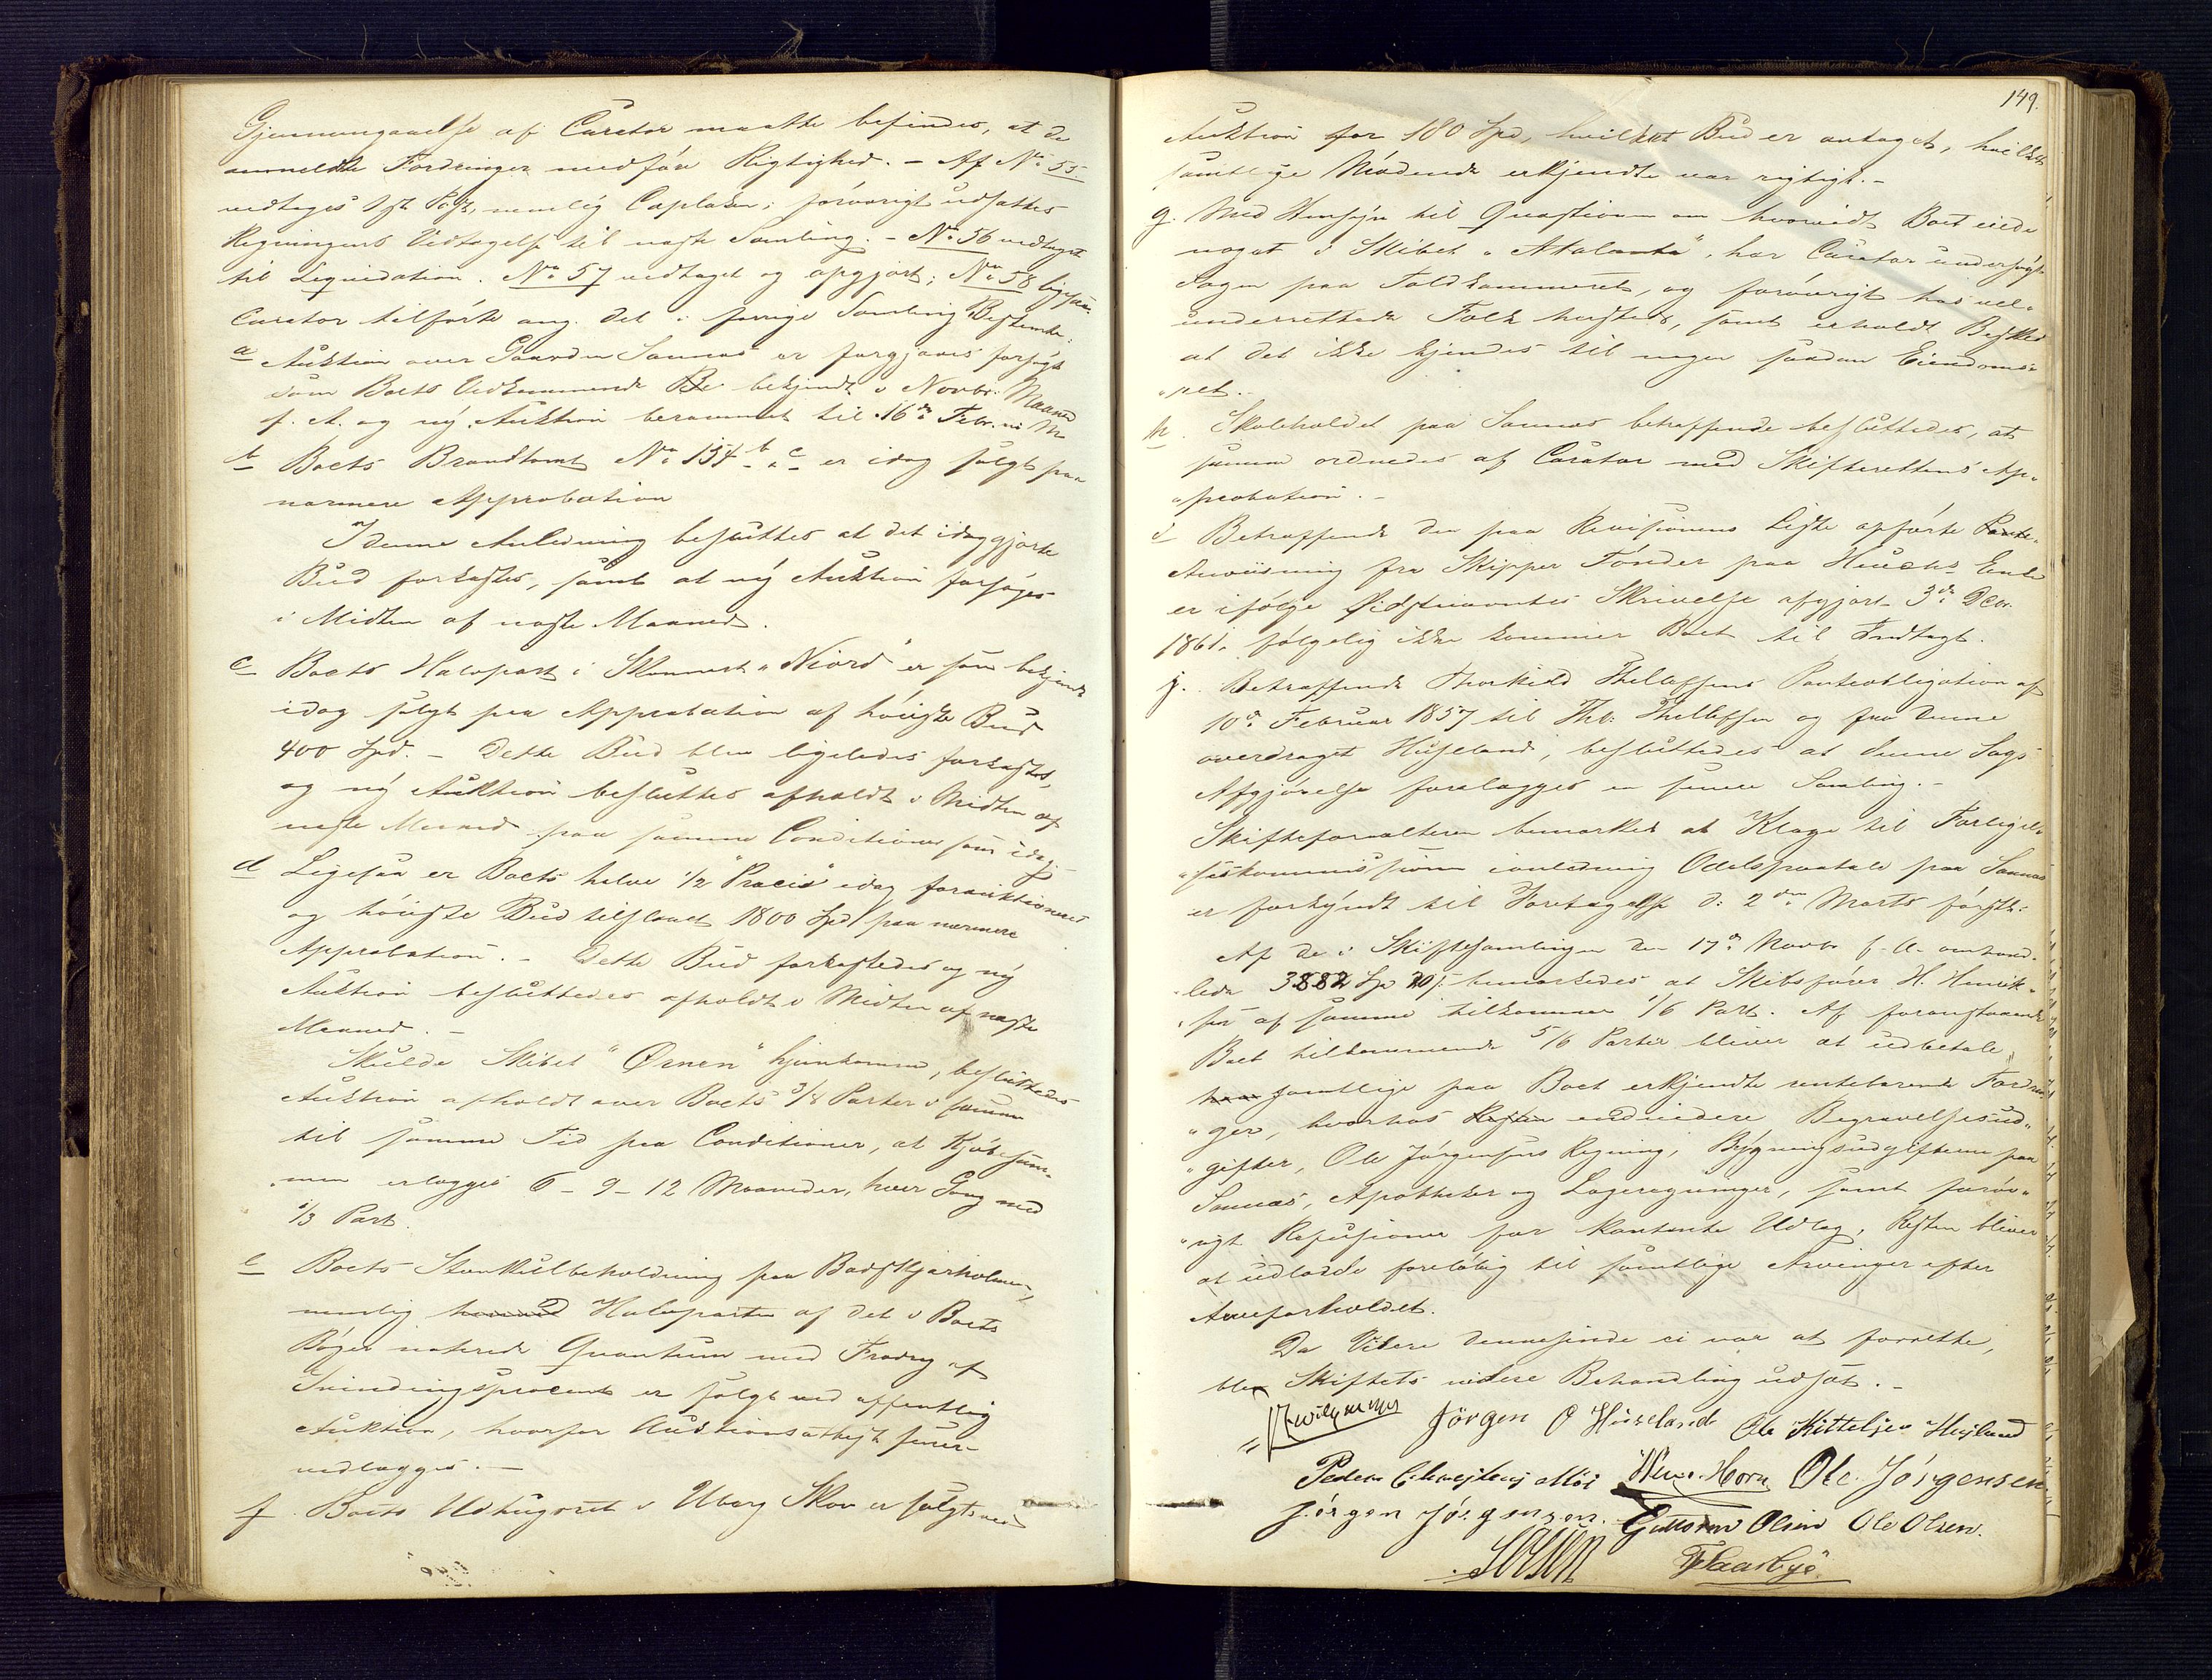 Gjennemgaaelse af Curator maatte befindes, at de
anmeldte Fordringer medføre Rigtighed. – Af No 55
vedtages 1ste Post, nemlig Caplaken; forøvrigt udsattes
Regningens Vedtagelse til næste Samling. – No 56 vedtaget
til Liqvidation. No 57 vedtaget og opgjort; No 58 ligesaa.
Curator tilførte ang. det i forrige Samling Bestemte:
a Auktion over Gaarden Sannæs er forgjæves forsøgt
som Boets Vedkommende Be bekjendt i Novbr. Maaned
f. A. og ny Auktion berammet til 16de Febr. n. M
b Boets Brandtomt No 134 b & c er idag solgt paa
nærmere Approbation
I denne Anledning besluttes at det idag gjorte
Bud forkastes, samt at ny Auktion forsøges
i Midten af næste Maaned.
c Boets Halvpart i Skonnert "Niord" er som bekjendt
idag solgt paa Approbation af høieste Bud
400 Spd. – Dette Bud blev ligeledes forkastet,
og ny Auktion besluttes afholdt i Midten af
næste Maaned paa samme Conditioner som idag.
d Ligesaa er Boets halve 1/2 "Præcis" idag forauktioneret
og høieste Bud tilslaaet 1800 Spd paa nærmere
Approbation. – Dette Bud forkastedes og ny
Auktion besluttedes afholdt i Midten af næste
Maaned. –
Skulde Skibet "Ørnen" hjemkomme, besluttedes
Auktion afholdt over Boets 3/8 Parter i samme
til samme Tid paa Conditioner, at Kjøbesum-
men erlægges 6 – 9 – 12 Maaneder, hver Gang med
1/3 Part.
e Boets Steenkulbeholdning paa Badskjærholmen,
nemlig Halvparten af det i Boets
Bøger noterede Qvantum med Fradrag af
Svindingsprocent er solgt ved offentlig
Auktion, hvorfor Auktionsattest senere
vedlægges. –
f Boets Udhugsret i Ubergs Skov er solgt ved
149.
Auktion for 180 Spd, hvilket Bud er antaget, hvilket
samtlige Mødende erkjendte var rigtigt. –
g. Med Hensyn til Qvæstionen om hvorvidt Boet eiede
noget i Skibet "Atalanta", har Curator undersøgt
Sagen paa Toldkammeret, og forøvrigt hos vel-
underrettede Folk hersteds, samt erholdt Besked
at det ikke kjendes til nogen saadan Eiendoms-
"ret. –
h. Skoleholdet paa Sannæs betræffende besluttedes, at
samme ordnedes af Curator med Skifterettens Ap-
"probation. –
i Betræffende den paa Revisionens Liste opførte
Anvisning fra Skipper Tønder paa Hans Enke
er ifølge Skrivelse afgjort 3de Decbr.
1861. følgelig ikke kommer Boet til Indtægt.
j. Betræffende Thorkild Thellefsens Panteobligation af
10de Februar 1857 til Thb. Thellefsen og fra denne
overdraget Huseland, besluttedes at denne Sags
Afgjørelse forelægges en senere Samling. –
Skifteforvalteren bemærkede at Klage til Forligel-
"seskommissionen i anledning Odelspaatale paa Sannæs
er forkyndt til Foretagelse d: 2den Marts førstk:
Af de i Skiftesamlingen den 17de Novbr f. A. omhand-
"lede 3882 Spd bemærkedes at Skibsfører H. Henrik-
"sen af samme tilkommer 1/6 Part. Af foranstaaende
Boet tilkommende 5/6 Parter bliver at udbetale
samtlige paa Boet erkjendte rentebærende Fordrin-
"ger, hvorhos endvidere Begravelsesud-
"gifter, Ole Jørgensens Regning, Bygningsudgifterne paa
Sannæs, Apotheker og Lægeregninger, samt forøv-
"rigt Refusioner for kontante Udlæg. Resten bliver
at udlodde foreløbig til samtlige Arvinger efter
Arveforholdet.
Da Videre dennesinde ei var at forrette,
blev Skiftets videre Behandling udsat. –
Jörgen O Huseland Ole Kittelsen Huseland
Peder Horn Ole Jörgensen
Jörgen Jörgensen. Guttorm Olsen Ole Olsen.
S Olsen